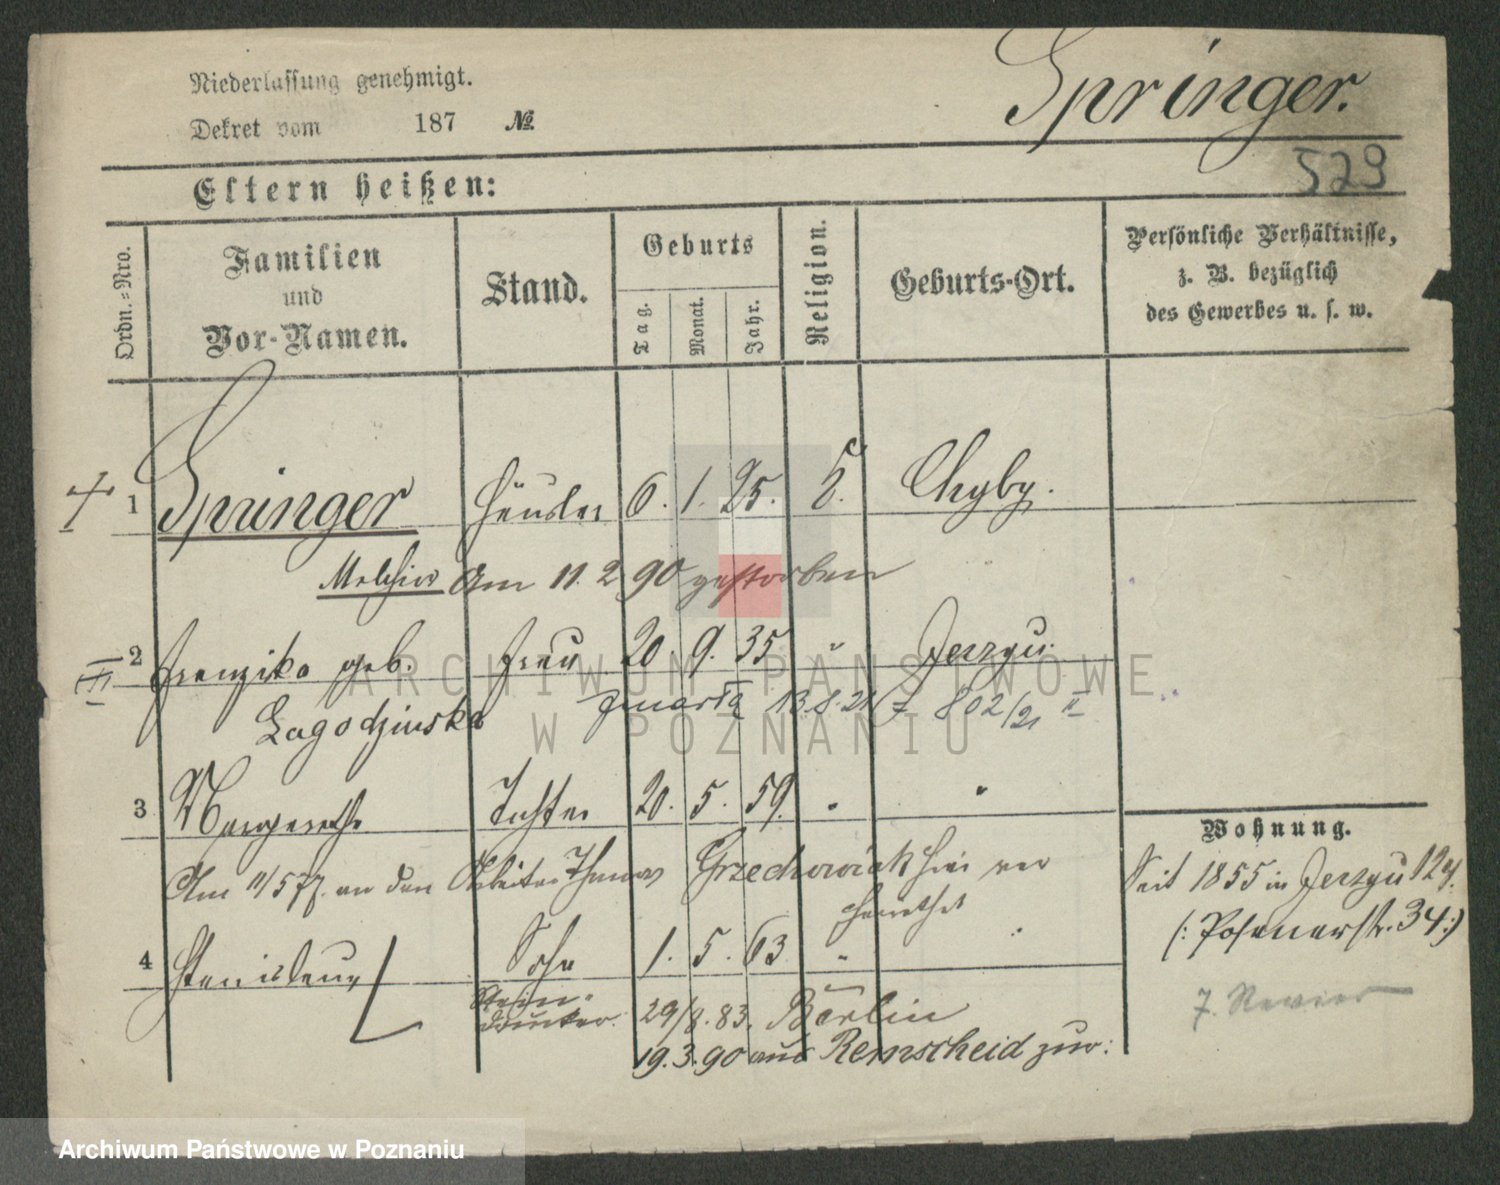 Niederlassung genehmigt.
Springer.
Dekret vom 187 №
529
Eltern heißen:
Ordn.-Nro.
Familien
und
Vor-Namen.
Stand.
Geburts
Tag.
Monat.
Jahr.
Religion.
Geburts-Ort.
Persönliche Verhältnisse,
z. B. bezüglich
des Gewerbes u. s. w.
1 Springer Häusler 6. 1. 25. Chyby.
Melchior Am 11. 2 90 gestorben
2 Franziska geb. Frau 20. 9. 35 " Jerzyce.
Lagodzinska 13.8.21 802/21 II
3 Margarethe Tochter 20. 5. 59. " "
Wohnung.
Am 11/5 77. an den Arbeiter Thomas Grzechowiak hier ver
heirathet
Seit 1855 in Jerzyce 124.
(: Posenerstr. 34 :)
4 Stanislaus Sohn 1. 5. 63 " "
Stein-
drucker. 29/8. 83. Berlin
7. Revier
19.3.90 aus Remscheid zur:
ARCHIWUM PAŃSTWOWE
W POZNANIU
Archiwum Państwowe w Poznaniu